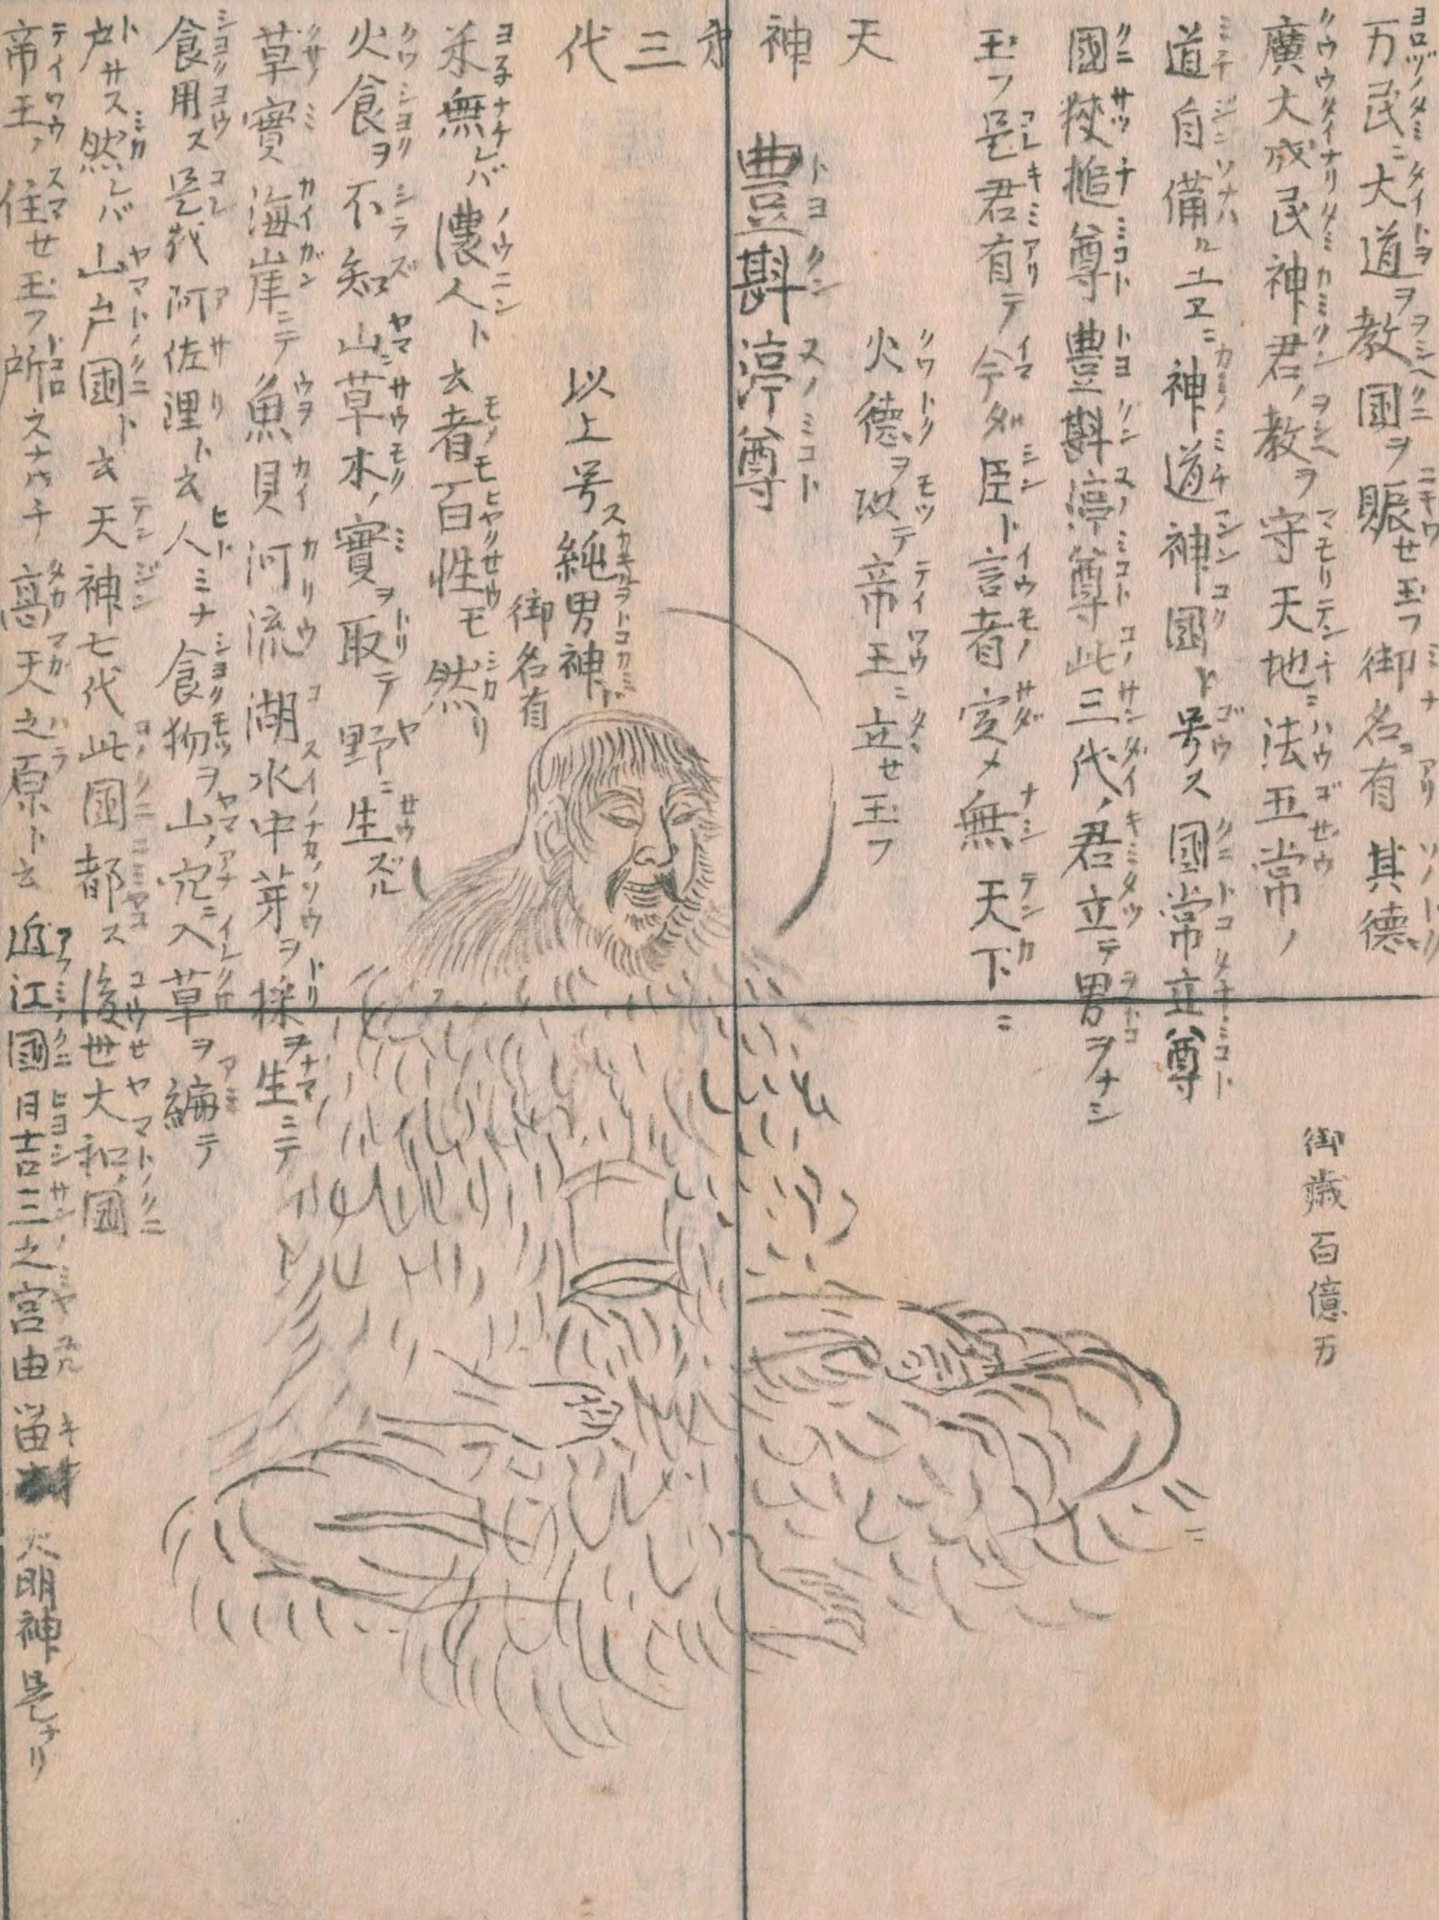 万民ニ大道ヲ教国ヲ賑セ玉フ御名有其德
廣大成民神君ノ教ヲ守天地ニ法五常ノ
道自備ル故ニ神道神國ト号ス國常立尊
國狹槌尊豊斟渟尊此三代ノ君立テ男ヲナシ
玉フ是君有テ今ダ臣ト言者定メ無天下ニ
火德ヲ以テ帝王ニ立セ玉フ
天神第三代
豊斟渟尊
以上号純男神ト
御名有
御歳百億万
米無レバ濃人ト云者百性モ然リ
火食ヲ不知山草木ノ實ヲ取テ野ニ生ズル
草實海岸ニテ魚貝河流湖水中芽ヲ採ヲ生ニテ
食用ス是我阿佐浬ト云人ミナ食物ヲ山ノ穴ニ入草ヲ編テ
戸サス然レバ山戸國ト云天神七代此國都ス後世大和國
帝王ノ住セ玉フ所スナハチ高天之原ト云近江國日吉三之宮由留 大明神是ナリ